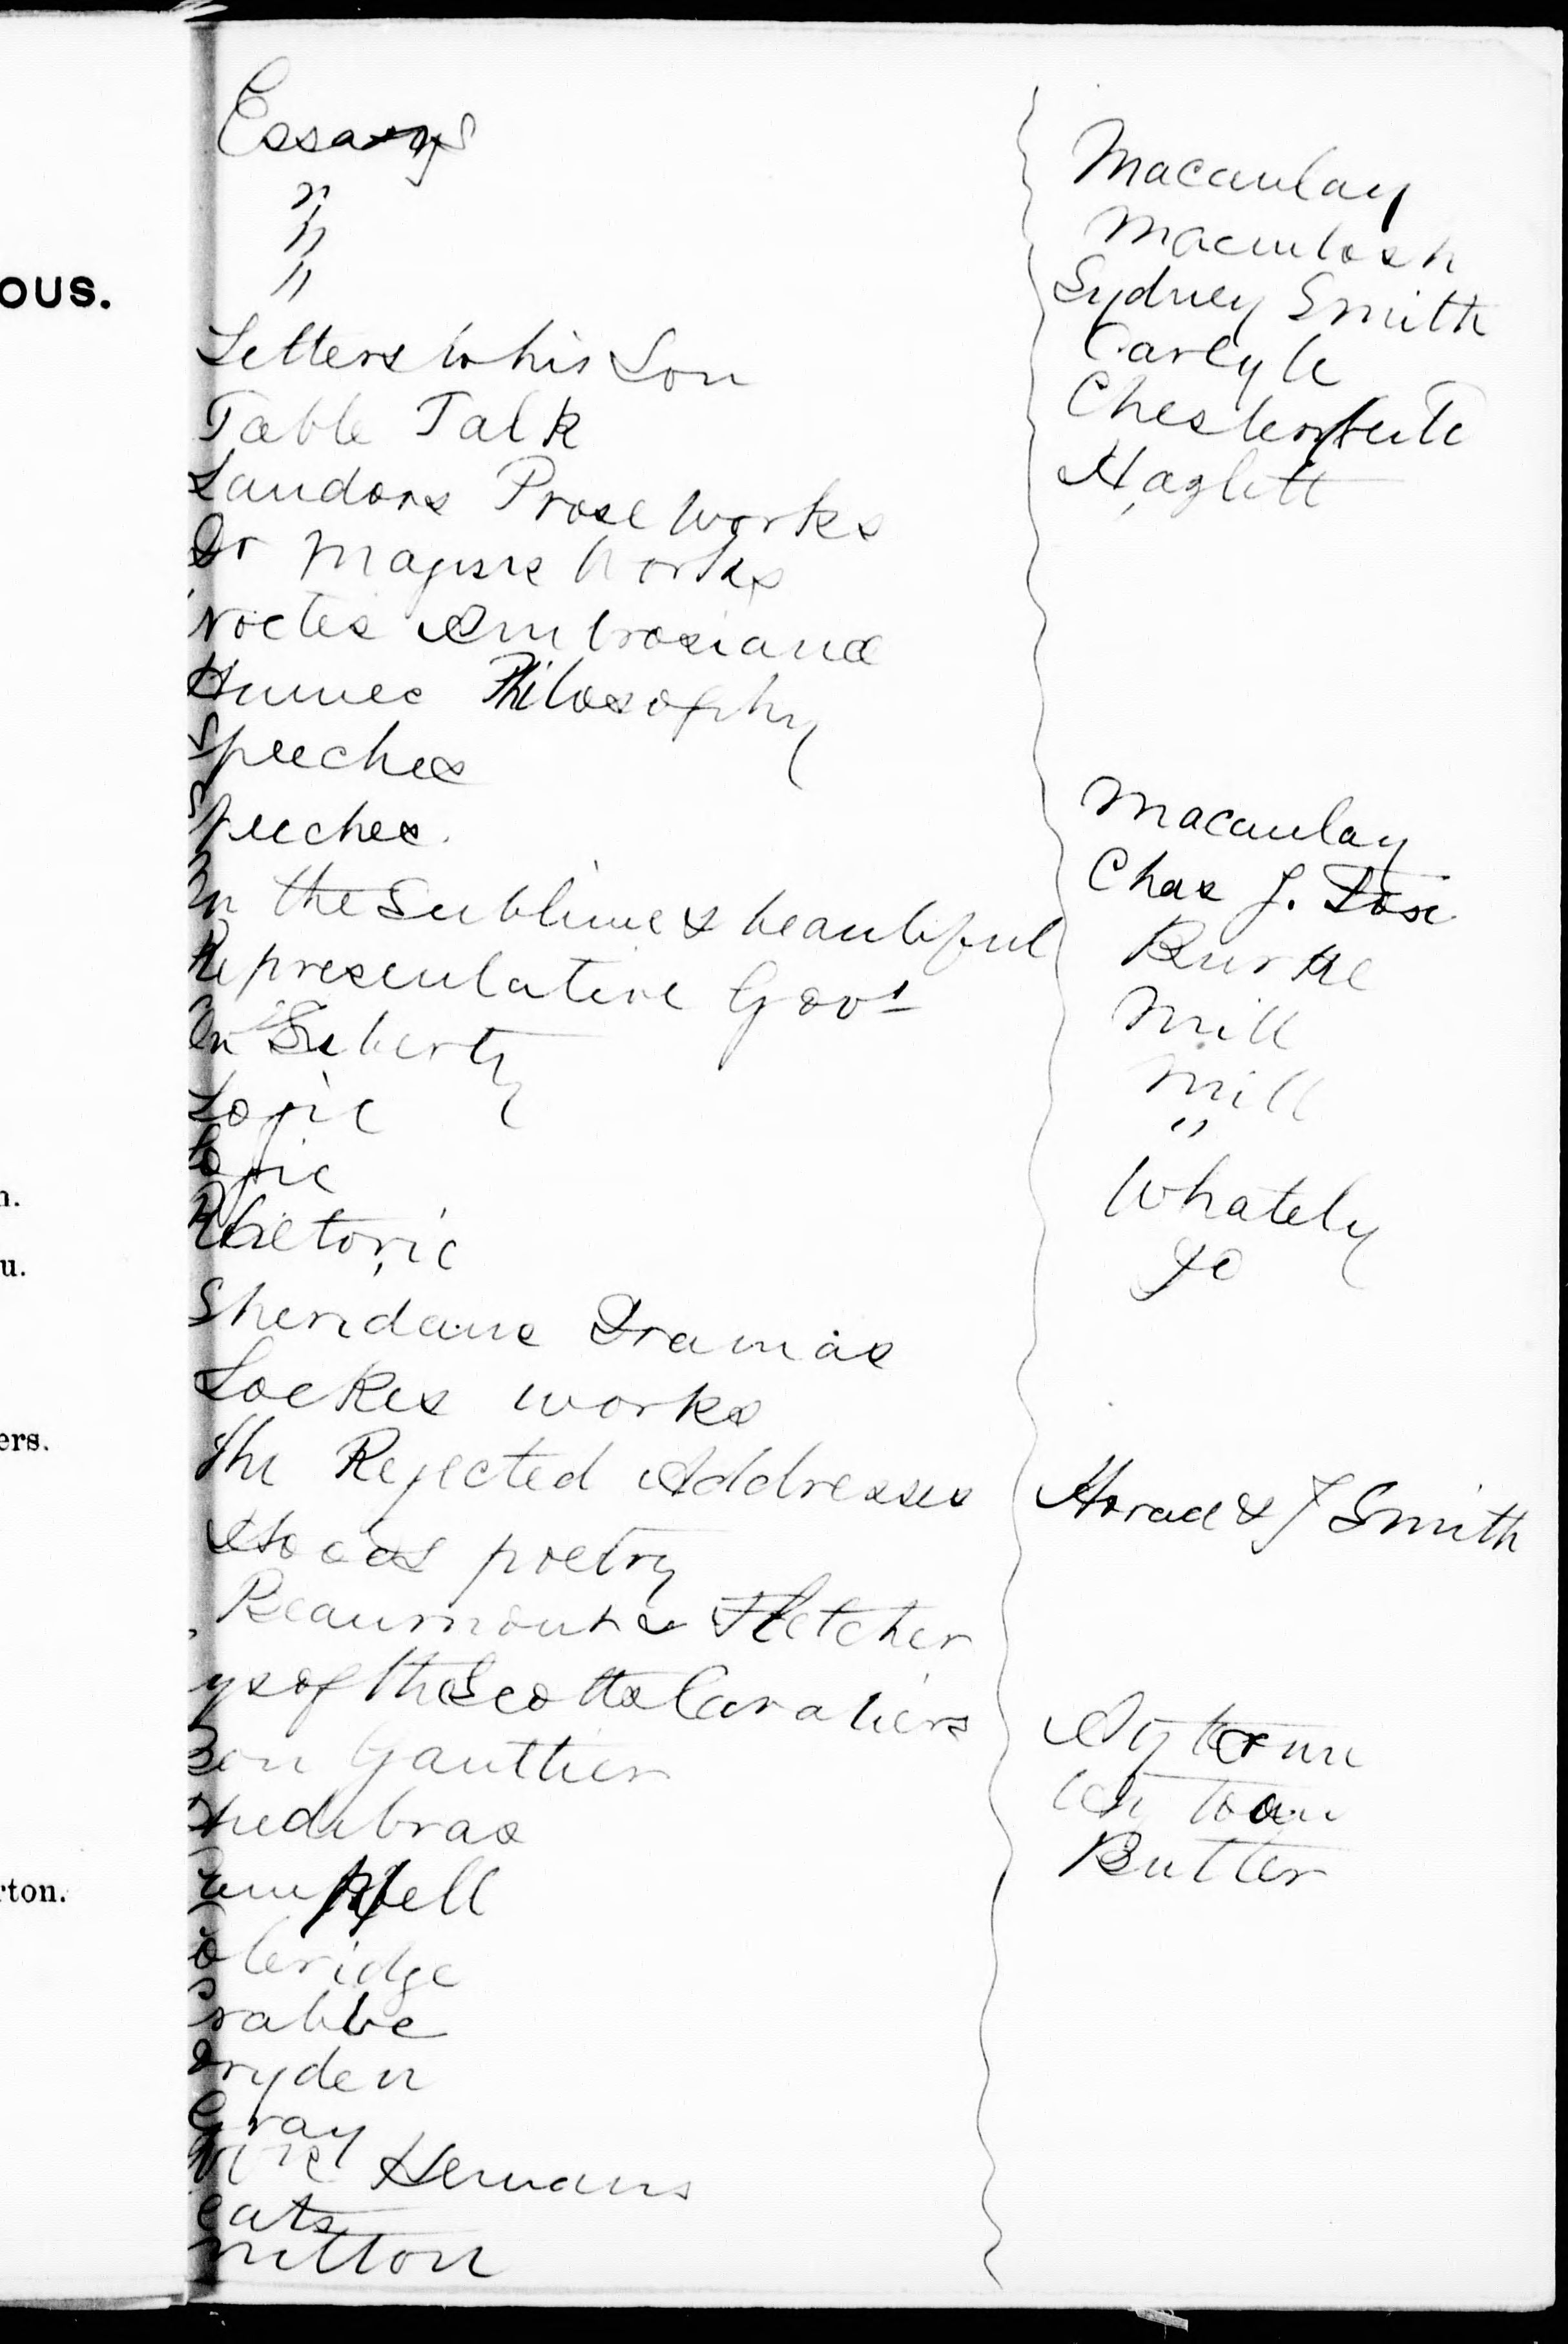 OUS.
n.
u.
ers.
rton.
Essays Macaulay
" Macintosh
" Sydney Smith
" Carlyle
Letters to his Son
Table Talk Hazlitt
Landors Prose Works
Dr Maginns Works
Noctes Ambrosianæ
Humes Philosophy
Speeches Macaulay
Speeches. Chas J. Fox
On the Sublime & beautiful Burke
Representative Govt Mill
On Liberty Mill
Logic "
Logic Whately
Rhetoric Do
Sheridans Dramas
Lockes works
The Rejected Addresses Horace & J Smith
Hoods poetry
Beaumont & Fletcher
ys of the Scotts Cavaliers Aytoun
Bon Gaultier Aytoun
Hudibras Butler
Campbell
Coleridge
Crabbe
Dryden
Gray
Mrs Hemans
eats
Milton